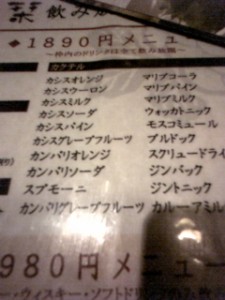 栞 飲み放
◆1890円メニュー
~枠内のドリンクは全て飲み放題~
カクテル
カシスオレンジ マリブコーラ
カシスウーロン マリブパイン
カシスミルク マリブミルク
カシスソーダ ウォッカトニック
カシスパイン モスコミュール
カシスグレープフルーツ ブルドック
カンパリオレンジ スクリュードライ
カンパリソーダ ジンバック
スプモーニ ジントニック
カンパリグレープフルーツ カルーアミル
980円メニュー
ー・ウィスキー・ソフトドリンク